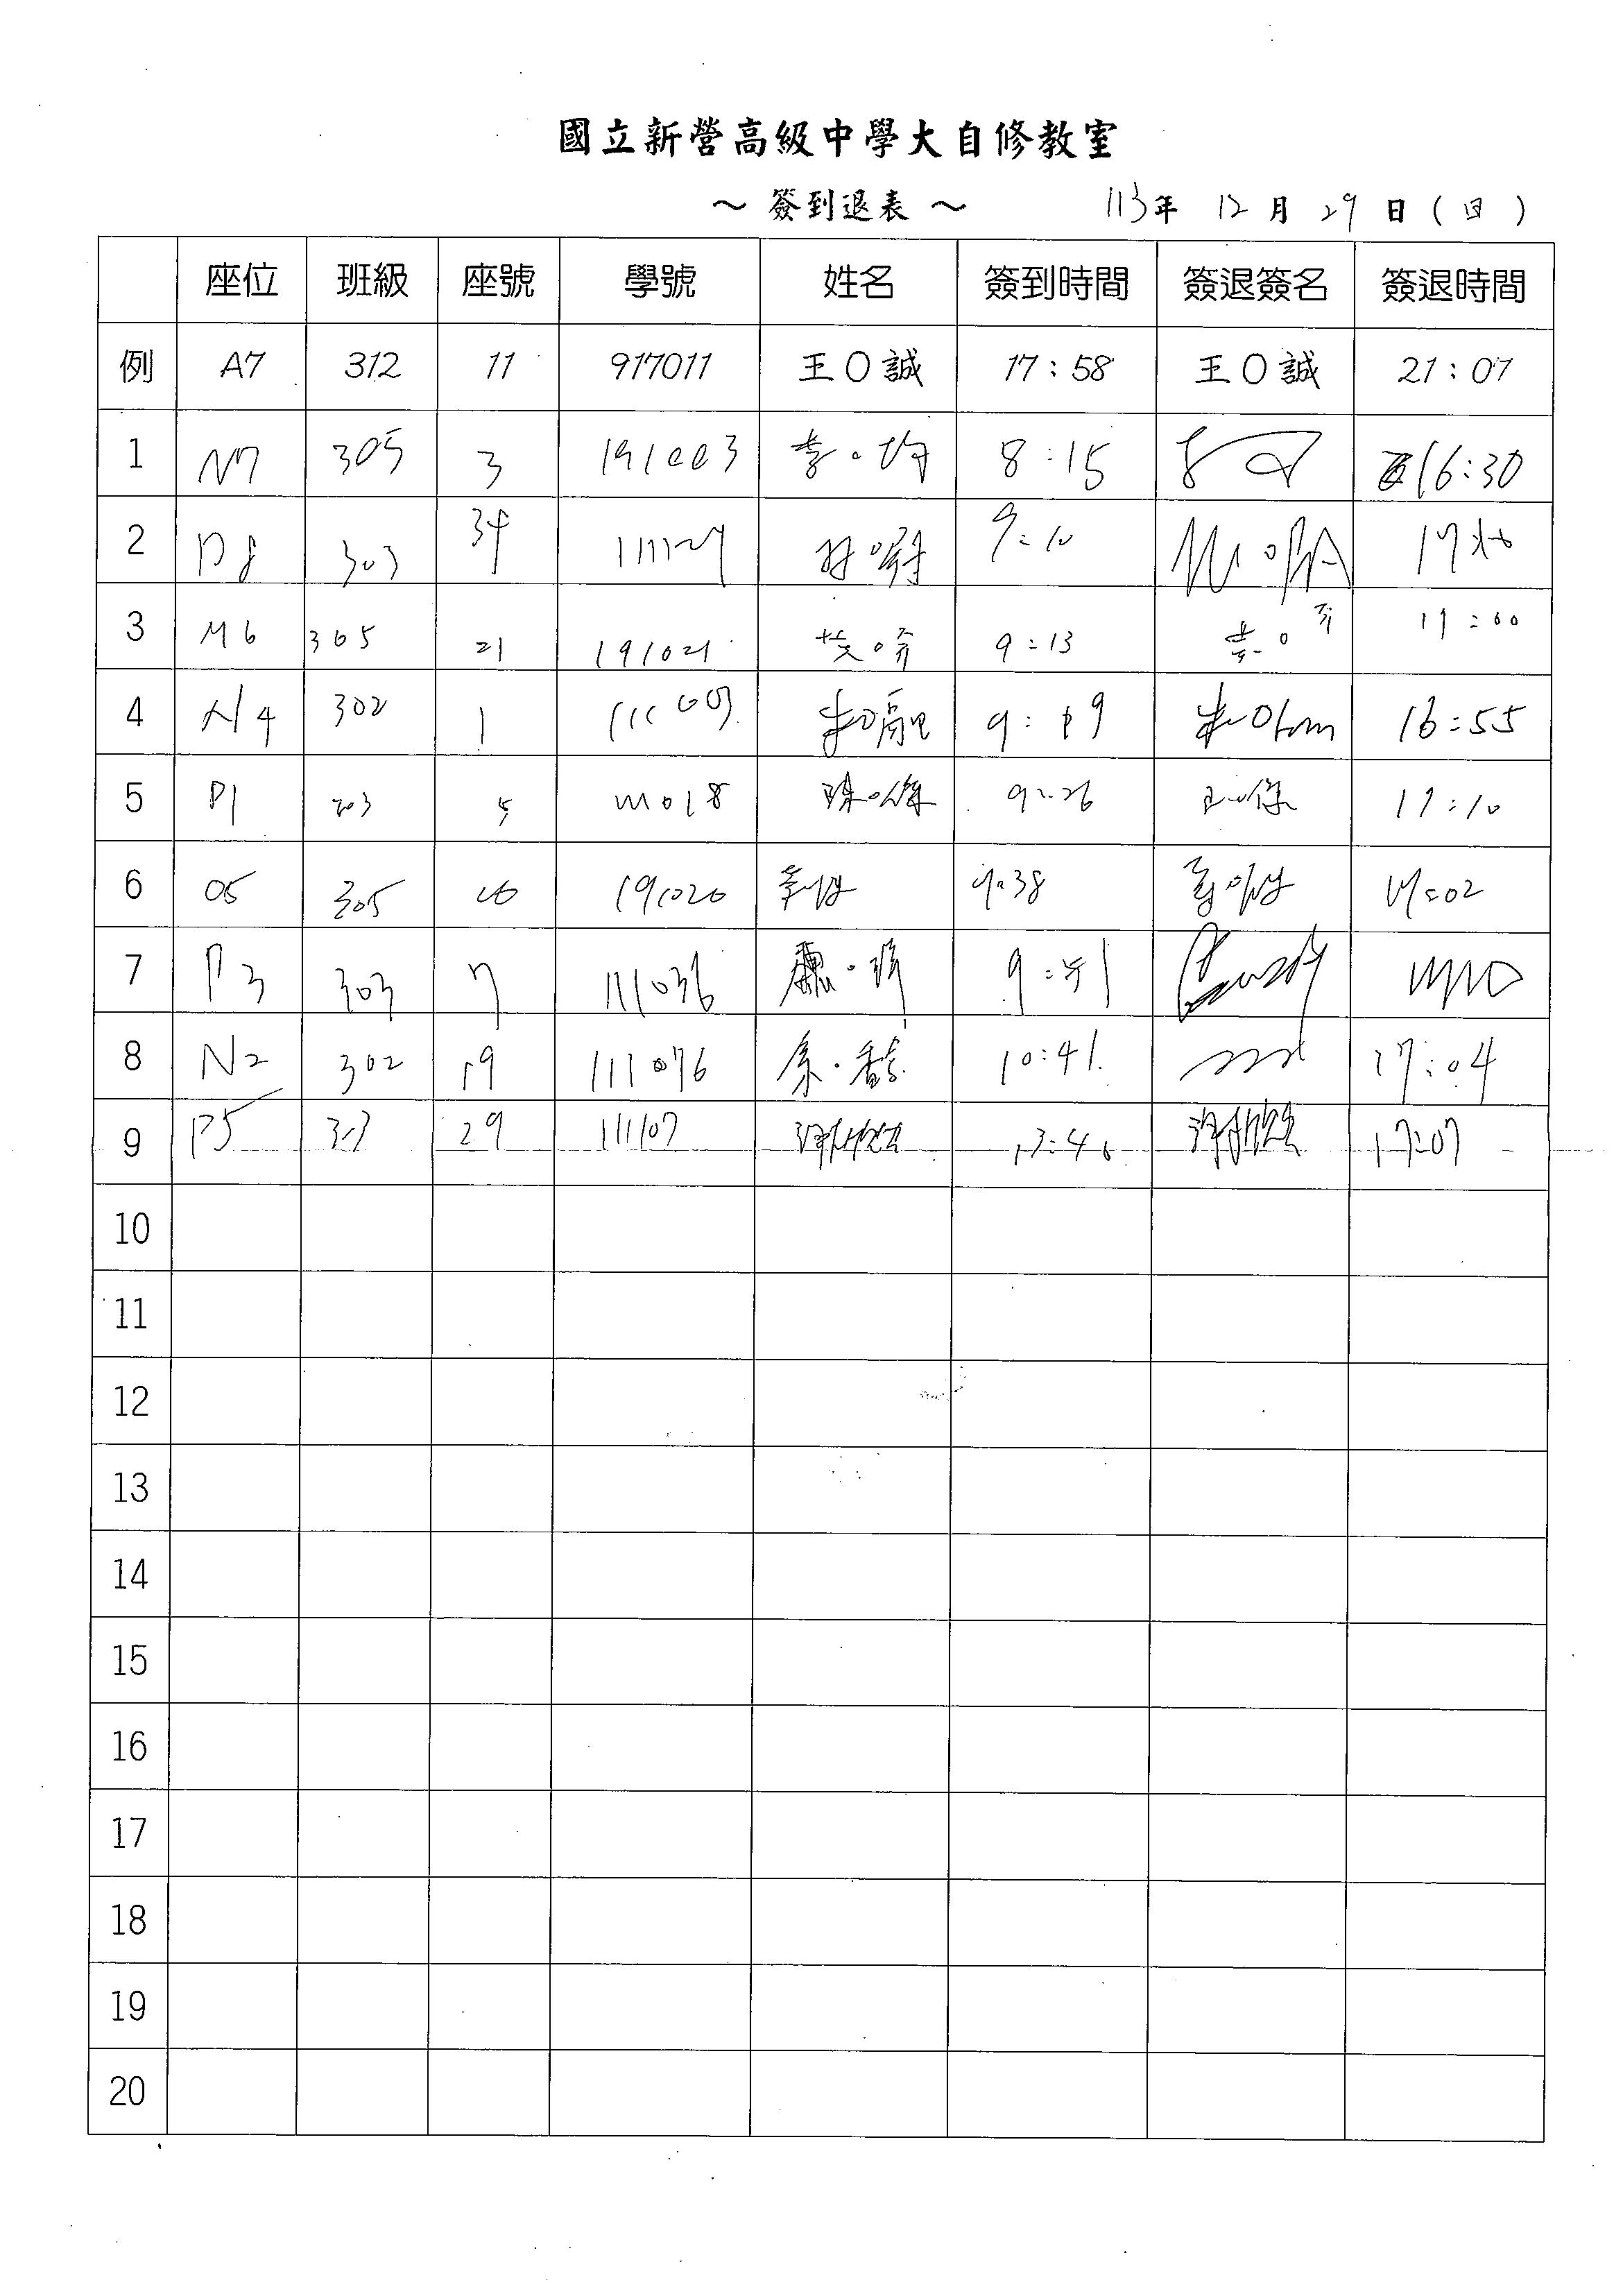 國立新營高級中學大自修教室
～ 簽到退表 ～ 113年 12月 29日 (日)
座位 班級 座號 學號 姓名 簽到時間 簽退簽名 簽退時間
例 A7 312 11 917011 王O誠 17:58 王O誠 21:07
1 N7 305 3 191003 李o均 8:15 16:30
2 P8 303 34 9:10
3 M6 305 21 191021 黃o 9:13 黃o 17:00
4 N4 302 1 朱o 9:19 朱o 16:55
5 P1 303 5 111018 陳o傑 9:26 17:10
6 05 305 20 191020 9:38 17:02
7 P3 303 7 111036 魏o 9:41
8 N2 302 19 111076 余o馨 10:41 17:04
9 P5 29 111107 13:46 17:07
10
11
12
13
14
15
16
17
18
19
20